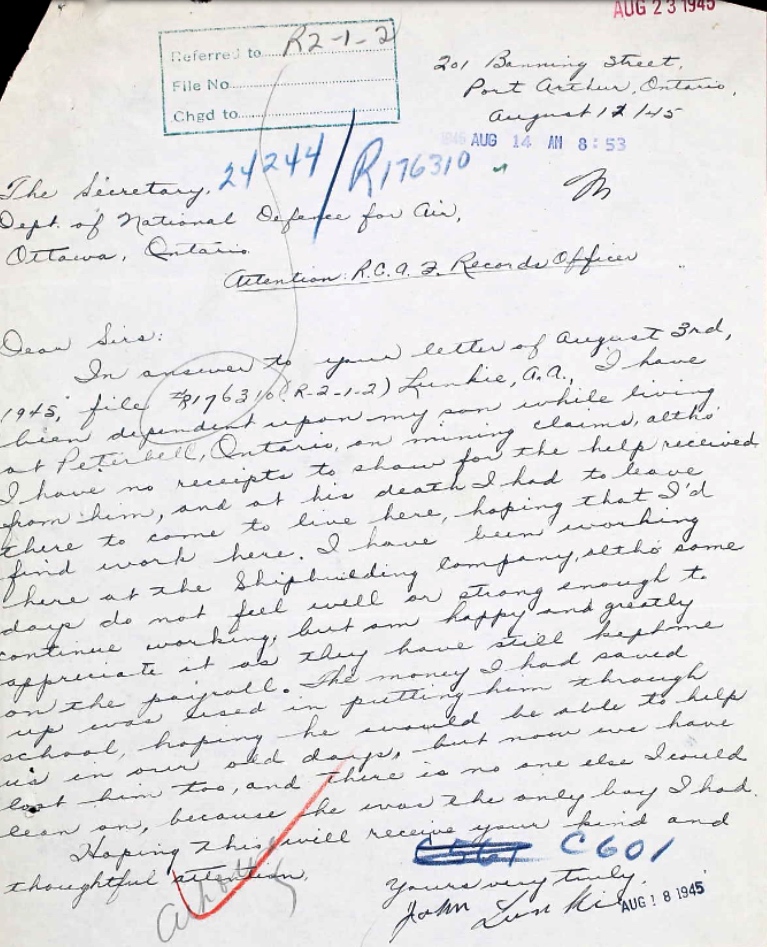 AUG 23 1945
Referred to R2-1-2
File No.
Chgd to
201 Banning Street,
Port Arthur, Ontario,
August 12/45
1945 AUG 14 AM 8:53
24244/R176310
The Secretary,
Dept. of National Defence for Air,
Ottawa, Ontario
Attention: R.C.A.F. Records Officer
Dear Sirs:
In answer to your letter of August 3rd,
1945, file #R176310 (R-2-1-2) Lunkie, A.A., I have
been dependent upon my son while living
at Peterbell, Ontario, on mining claims, altho'
I have no receipts to show for the help received
from him, and at his death I had to leave
there to come to live here, hoping that I'd
find work here. I have been working
here at the Shipbuilding Company, altho some
days do not feel well or strong enough to
continue working, but am happy and greatly
appreciate it as they have still kept me
on the payroll. The money I had saved
up was used in putting him through
school, hoping he would be able to help
us in our old days, but now we have
lost him too, and there is no one else I could
lean on, because he was the only boy I had.
Hoping this will receive your kind and
thoughtful attention.
C601
Yours very truly,
John Lunkie
AUG 18 1945